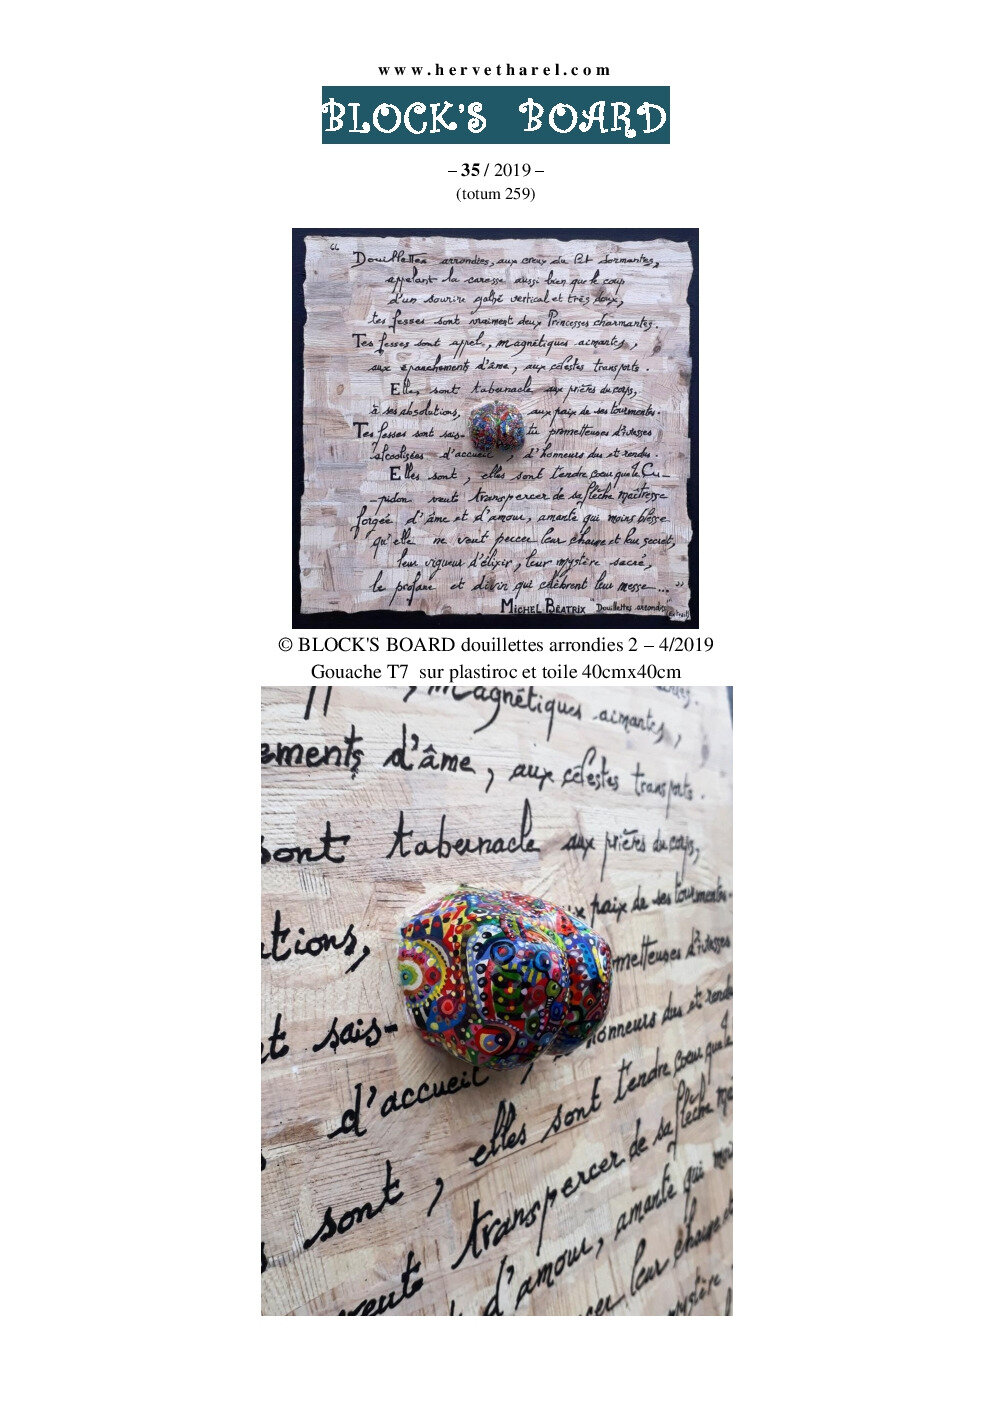 www.hervetharel.com
BLOCK'S BOARD
– 35 / 2019 –
(totum 259)
“ Douillettes arrondies, aux creux du lit dormantes,
appelant la caresse aussi bien que le coup
d'un sourire galbé vertical et très doux,
tes fesses sont vraiment deux Princesses charmantes.
Tes fesses sont appel, magnétiques aimantes,
aux épanchements d'âme, aux célestes transports.
Elles sont tabernacle aux prières du corps,
à ses absolutions, aux paix de ses tourmentes.
Tes fesses sont sais-tu prometteuses d'ivresses
alcoolisées d'accueil, d'honneurs dus et rendus.
Elles sont, elles sont tendre coeur que le Cu-
-pidon veut transpercer de sa flèche maîtresse
forgée d'âme et d'amour, amante qui moins blesse
qu'elle ne veut percer leur charme et leur secret,
leur vigueur d'élixir, leur mystère sacré,
le profane et divin qui célèbrent leur messe... ”
MICHEL BÉATRIX "Douillettes arrondies
© BLOCK'S BOARD douillettes arrondies 2 – 4/2019
Gouache T7 sur plastiroc et toile 40cmx40cm
magnétiques aimantes,
ements d'âme, aux célestes transports.
sont tabernacle aux prières du corps,
ations, paix de ses tourmentes.
t sais- metteuses d'ivresses
d'accueil, honneurs dus et rendu
sont, elles sont tendre coeur que le
veut transpercer de sa flèche maî
d'amour, amante qui moi
cer leur charme et
mystère